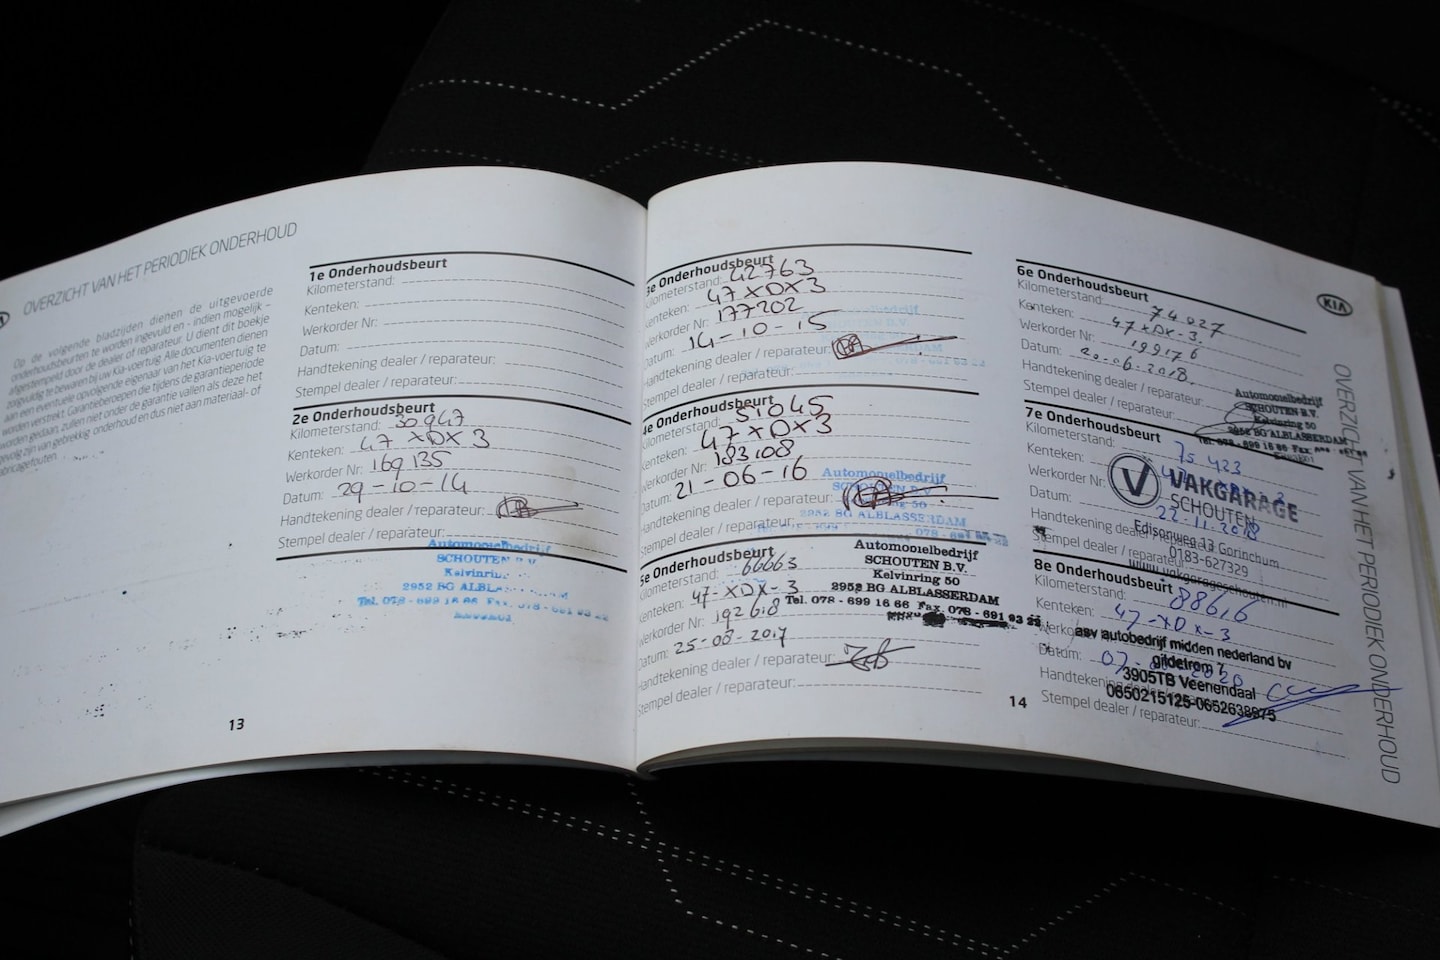 OVERZICHT VAN HET PERIODIEK ONDERHOUD
Op de volgende bladzijden dienen de uitgevoerde
onderhoudsbeurten te worden ingevuld en - indien mogelijk -
afgestempeld door de dealer of reparateur. U dient dit boekje
zorgvuldig te bewaren bij uw Kia-voertuig. Alle documenten dienen
aan een eventuele opvolgende eigenaar van het Kia-voertuig te
worden verstrekt. Garantieberoepen die tijdens de garantieperiode
worden gedaan, zullen niet onder de garantie vallen als deze het
gevolg zijn van gebrekkig onderhoud en dus niet aan materiaal- of
fabricagefouten.
1e Onderhoudsbeurt
Kilometerstand:
Kenteken:
Werkorder Nr:
Datum:
Handtekening dealer / reparateur:
Stempel dealer / reparateur:
2e Onderhoudsbeurt
Kilometerstand: 30947
Kenteken: 47 XDX 3
Werkorder Nr: 169135
Datum: 29-10-14
Handtekening dealer / reparateur:
Stempel dealer / reparateur:
Automobielbedrijf
SCHOUTEN B.V.
2952 BG
Tel. 078 - 699 16 66
13
3e Onderhoudsbeurt
Kilometerstand: 42763
Kenteken: 47 XDX 3
Werkorder Nr: 177202
Datum: 14-10-15
Handtekening dealer / reparateur:
Stempel dealer / reparateur:
4e Onderhoudsbeurt
Kilometerstand: 51045
Kenteken: 47 XDX 3
Werkorder Nr: 183108
Datum: 21-06-16
Handtekening dealer / reparateur:
Stempel dealer / reparateur:
Automobielbedrijf
2952 BG ALBLASSERDAM
5e Onderhoudsbeurt
Kilometerstand: 66663
Kenteken: 47-XDX-3
Werkorder Nr: 192618
Datum: 25-08-2017
Handtekening dealer / reparateur:
Stempel dealer / reparateur:
Automobielbedrijf
SCHOUTEN B.V.
Kelvinring 50
2952 BG ALBLASSERDAM
Tel. 078 - 699 16 66 Fax. 078 - 691 93 22
14
KIA
6e Onderhoudsbeurt
Kilometerstand: 74027
Kenteken: 47-XDX-3.
Werkorder Nr: 199176
Datum: 20-06-2018.
Handtekening dealer / reparateur:
Stempel dealer / reparateur:
Automobielbedrijf
SCHOUTEN B.V.
Kelvinring 50
2952 BG ALBLASSERDAM
Tel. 078 - 699 16 66 Fax.
7e Onderhoudsbeurt
Kilometerstand: 75 423
Kenteken:
Werkorder Nr:
Datum: 22-11-2018
Handtekening dealer / reparateur:
Stempel dealer / reparateur:
VAKGARAGE
SCHOUTEN
Edisonweg 13 Gorinchum
0183-627329
www.vakgarageschouten.nl
8e Onderhoudsbeurt
Kilometerstand: 88616
Kenteken: 47-XDX-3
Datum:
Handtekening dealer / reparateur:
Stempel dealer / reparateur:
asv autobedrijf midden nederland bv
gildetrom 7
3905TB Veenendaal
0650215125-0652638975
OVERZICHT VAN HET PERIODIEK ONDERHOUD